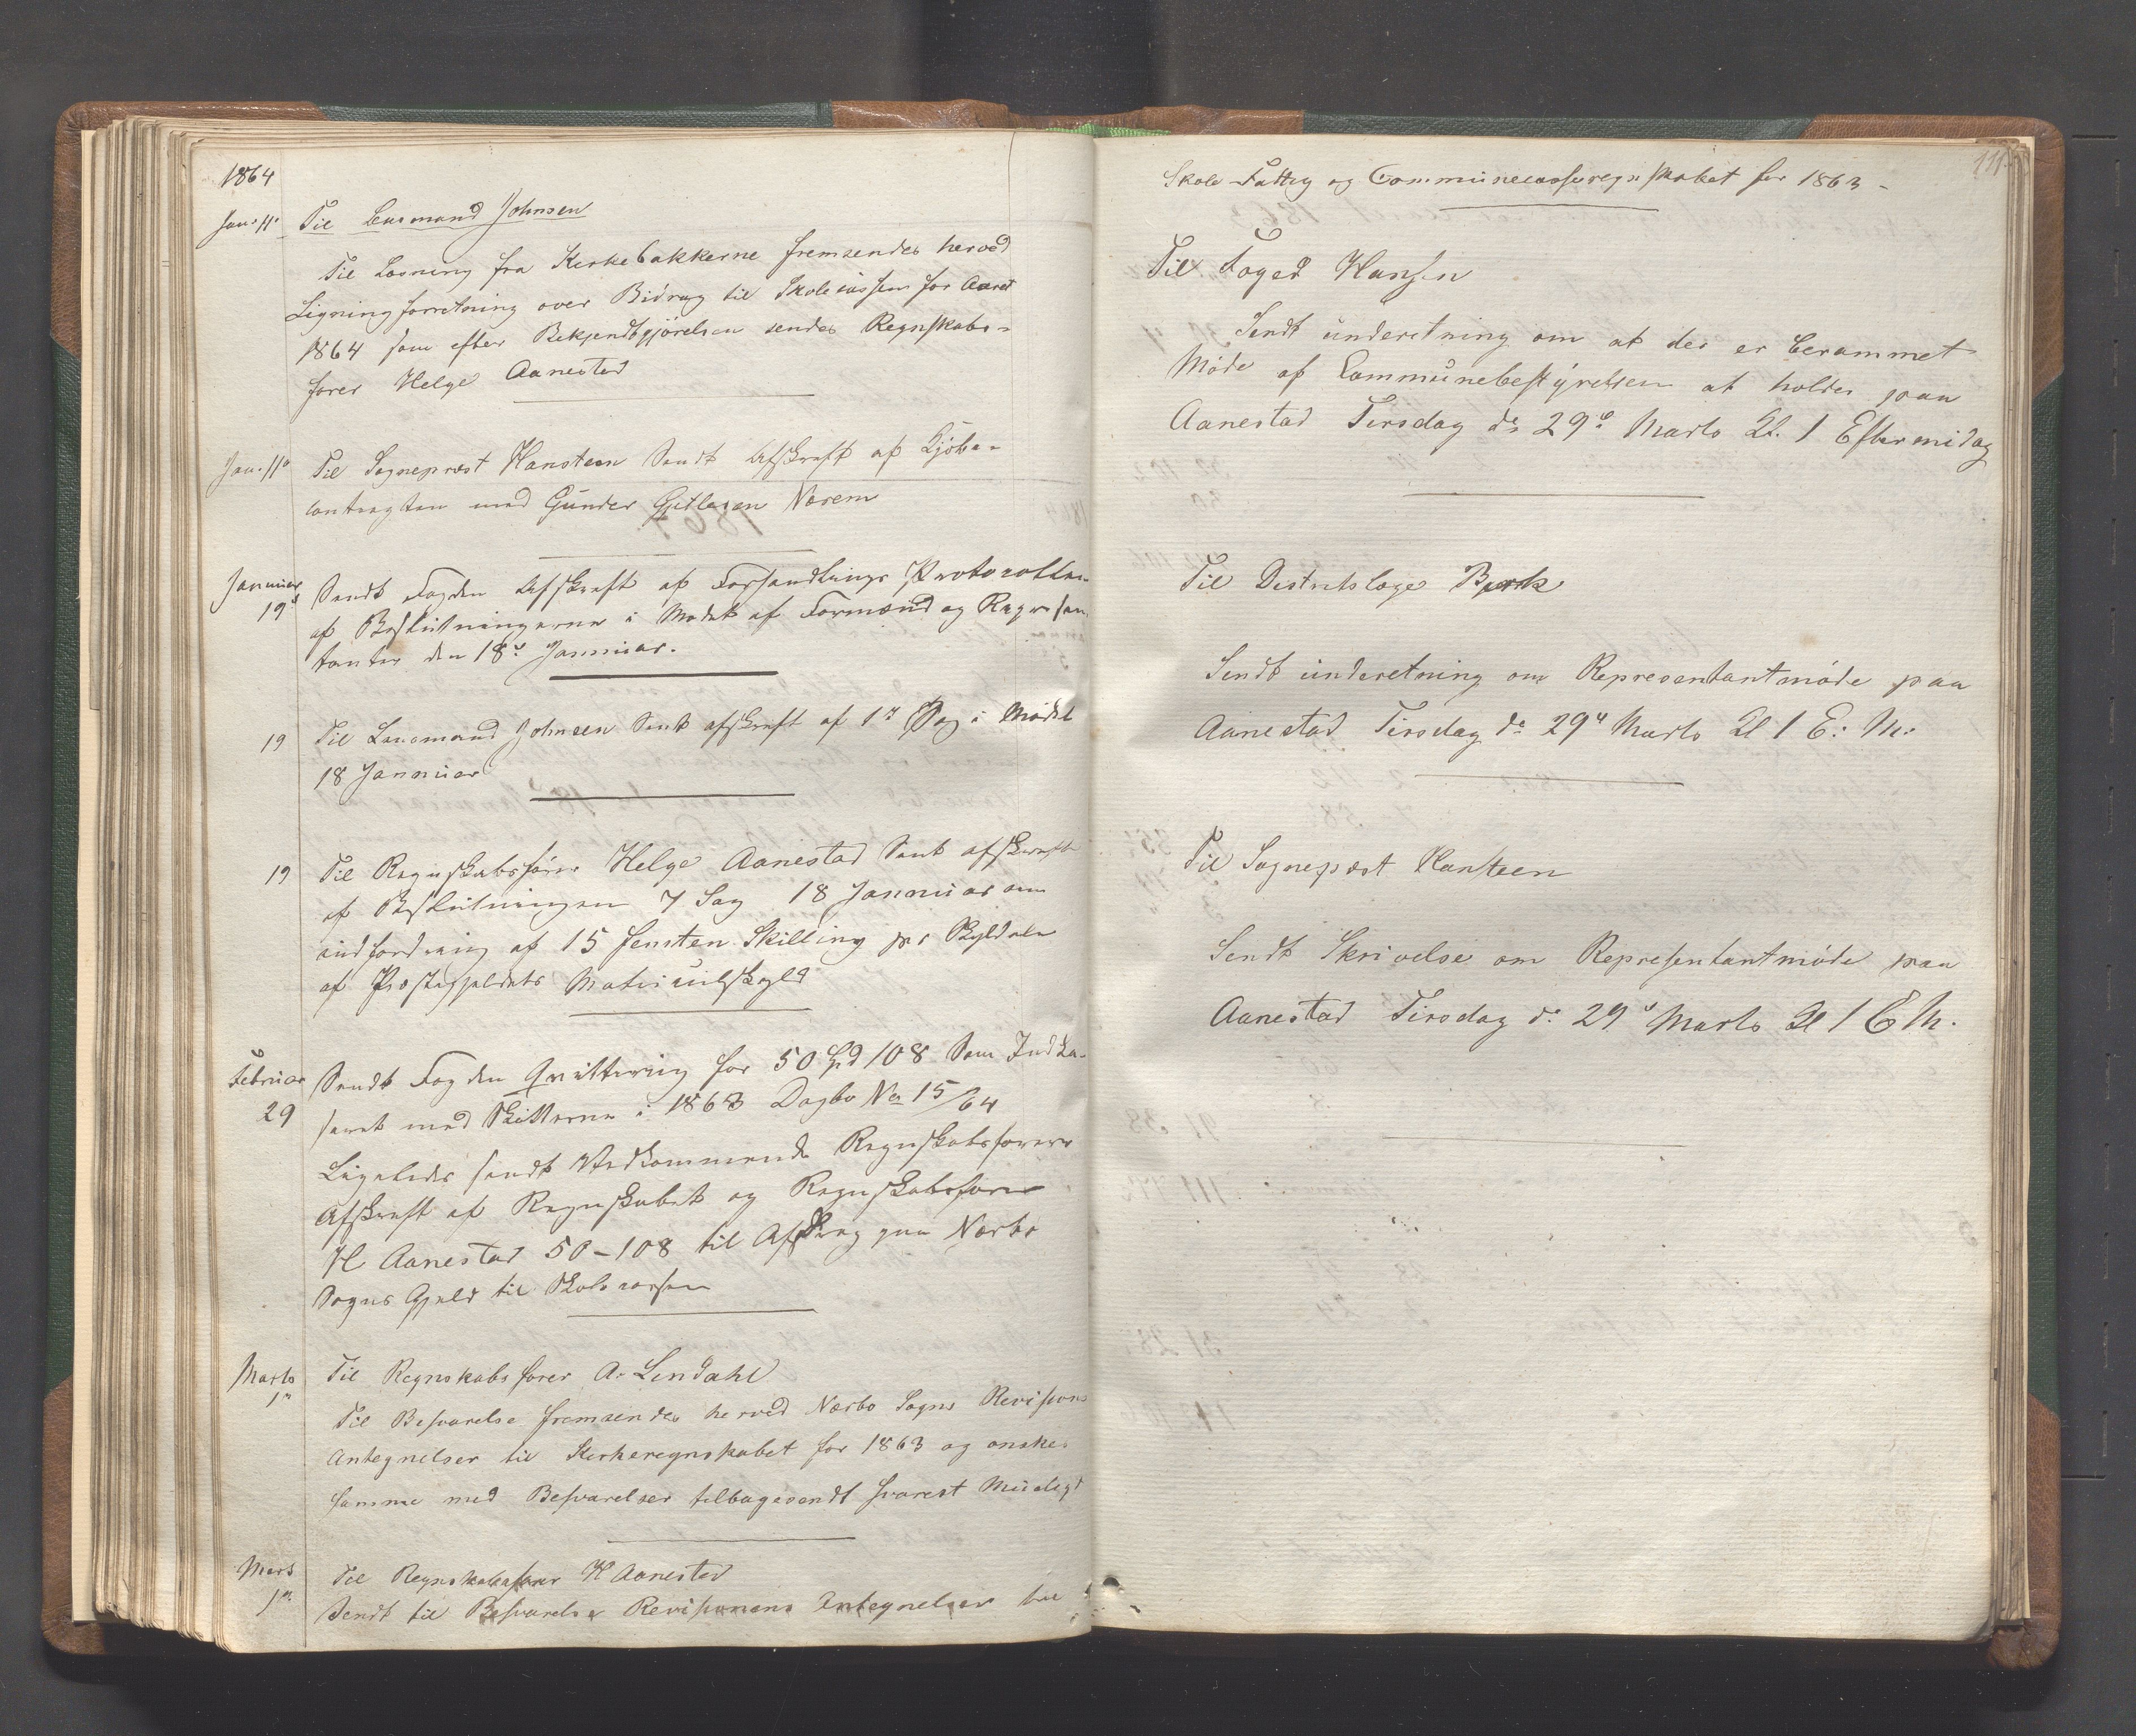 1864
Jan. 11. Til Lensmand Johnsen
Til Læsning fra Kirkebakkerne fremsendes herved
Ligningsforretning over Bidrag til Skolecassen for Aaret
1864 som efter Bekjendtgjörelsen sendes Regnskabs-
fører Helge Aanestad
Jan. 11 Til Sogneprest Hansteen Sendt Afskreft af Kjöbe-
contragten med Gunder Gitlesen Nærem
Januar
19d Sendt Fogden Afskreft af Forhandlings Protocollen
af Beslutningerne i Mødet af Formænd og Represen-
tanter den 18d Januar.
19 Til Lensmand Johnsen Sent afskreft af 1ste Sag i Mödet
18 Januar
19 Til Regnskabsförer Helge Aanestad Sent afskreft
af Beslutningen 7 Sag 18 Januar om
indfordring af 15 femten Skilling pr Skylddaler
af Præstegjeldets Matriculskyld
Februar
29 Sendt Fogden Qvittering for 50 Spd 108 Som Indka-
seret med Skatterne i 1863 Dagbo No 15/64
Ligeledes sendt Vedkommende Regnskabsførere
Afskreft af Regnskabet og Regnskabsfører
H Aanestad 50-108 til Afdrag paa Nærbø
Sogns Gjeld til Skolecassen
Marts
1st Til Regnskabsfører A. Lendahl
Til Besvarelse fremsendes herved Nærbo Sogns Revisions
Antegnelser til Kirkeregnskabet for 1863 og ønskes
samme med Besvarelser tilbagesendt snarest Mueligt
Mars
1st Til Regnskabsfører H Aanestad
Sendt til Besvarelse Revisionens Antegnelser til
111
Skole-Fattig og Communecasseregnskabet for 1863-
Til Foged Hansen
Sendt underetning om at der er berammet
Møde af Communebestyrelsen at holdes paa
Aanestad Tirsdag d. 29de Marts Kl. 1 Eftermidag
Til Distrtslæge Bærk
Sendt underetning om Representantmöde paa
Aanestad Tirsdag d. 29d Marts Kl 1 E: M.
Til Sognepræst Hansteen
Sendt Skrivelse om Representantmöde paa
Aanestad Tirsdag d. 29d Marts Kl 1 E M.